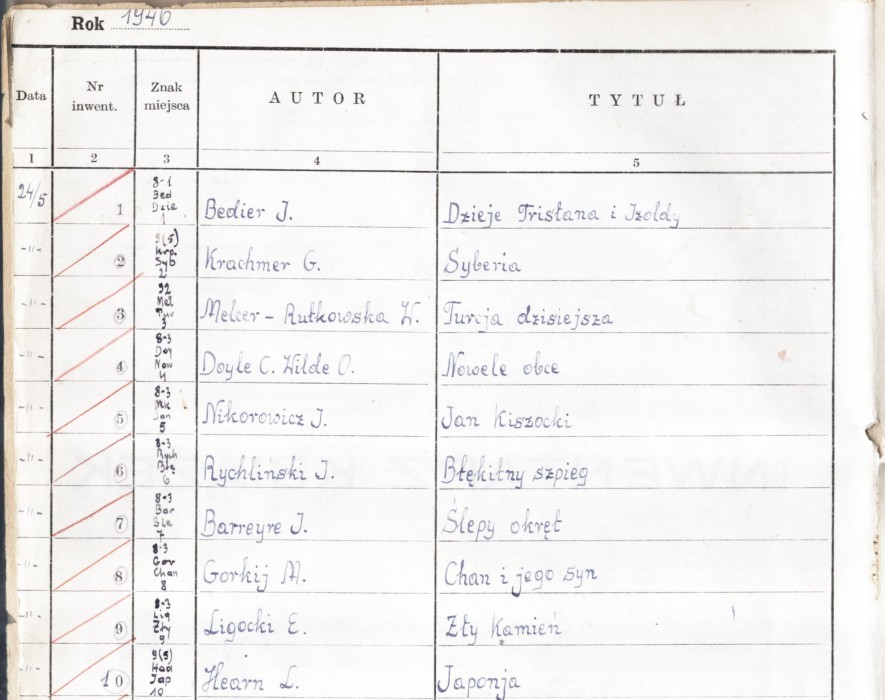 Rok 1946
Data Nr inwent. Znak miejsca AUTOR TYTUŁ
1 2 3 4 5
24/5 1 8-1 Bed Dzie 1 Bedier J. Dzieje Tristana i Izoldy
-"- 2 9(5) Kra Syb 2 Krachmer G. Syberia
-"- 3 92 Mel Tur 3 Melcer-Rutkowska W. Turcja dzisiejsza
-"- 4 8-3 Doy Now 4 Doyle C. Wilde O. Nowele obce
-"- 5 8-3 Nik Jan 5 Nikorowicz J. Jan Kiszocki
-"- 6 8-3 Rych Błę 6 Rychlinski J. Błękitny szpieg
-"- 7 8-3 Bar Śle 7 Barreyre J. Ślepy okręt
-"- 8 8-3 Gor Chan 8 Gorkij M. Chan i jego syn
-"- 9 8-3 Lig Zły 9 Ligocki E. Zły kamień
-"- 10 9(5) Jap 10 Hearn L. Japonja